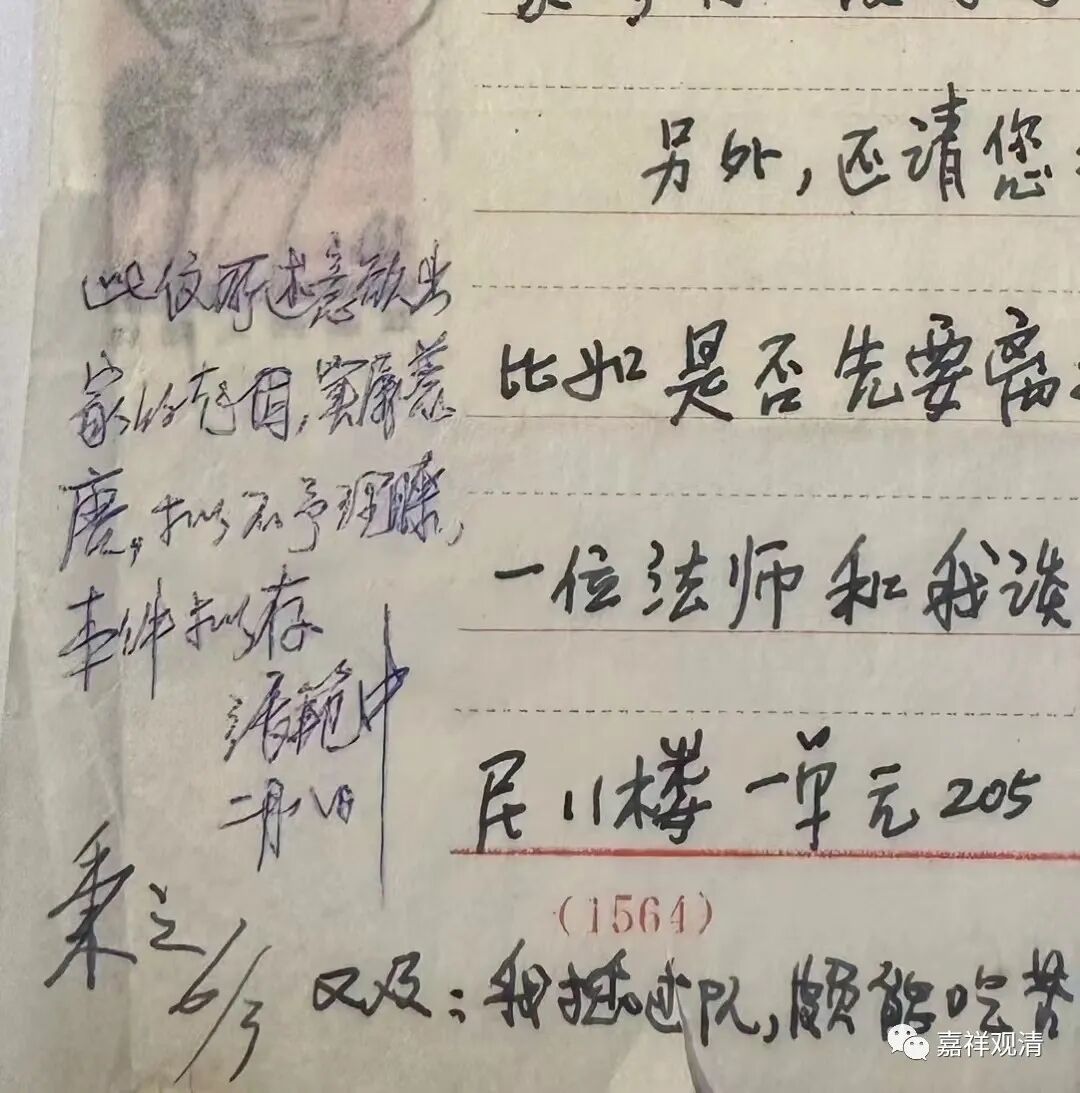 另外，还请您
比如是否先要离
一位法师和我谈
民11楼一单元205
(1564)
又及：我插过队，颇能吃苦
此信所述意欲出
家的原因，实属荒
唐，拟不予理睬，
来件拟存
范中
二月八日
6/3
嘉祥观清